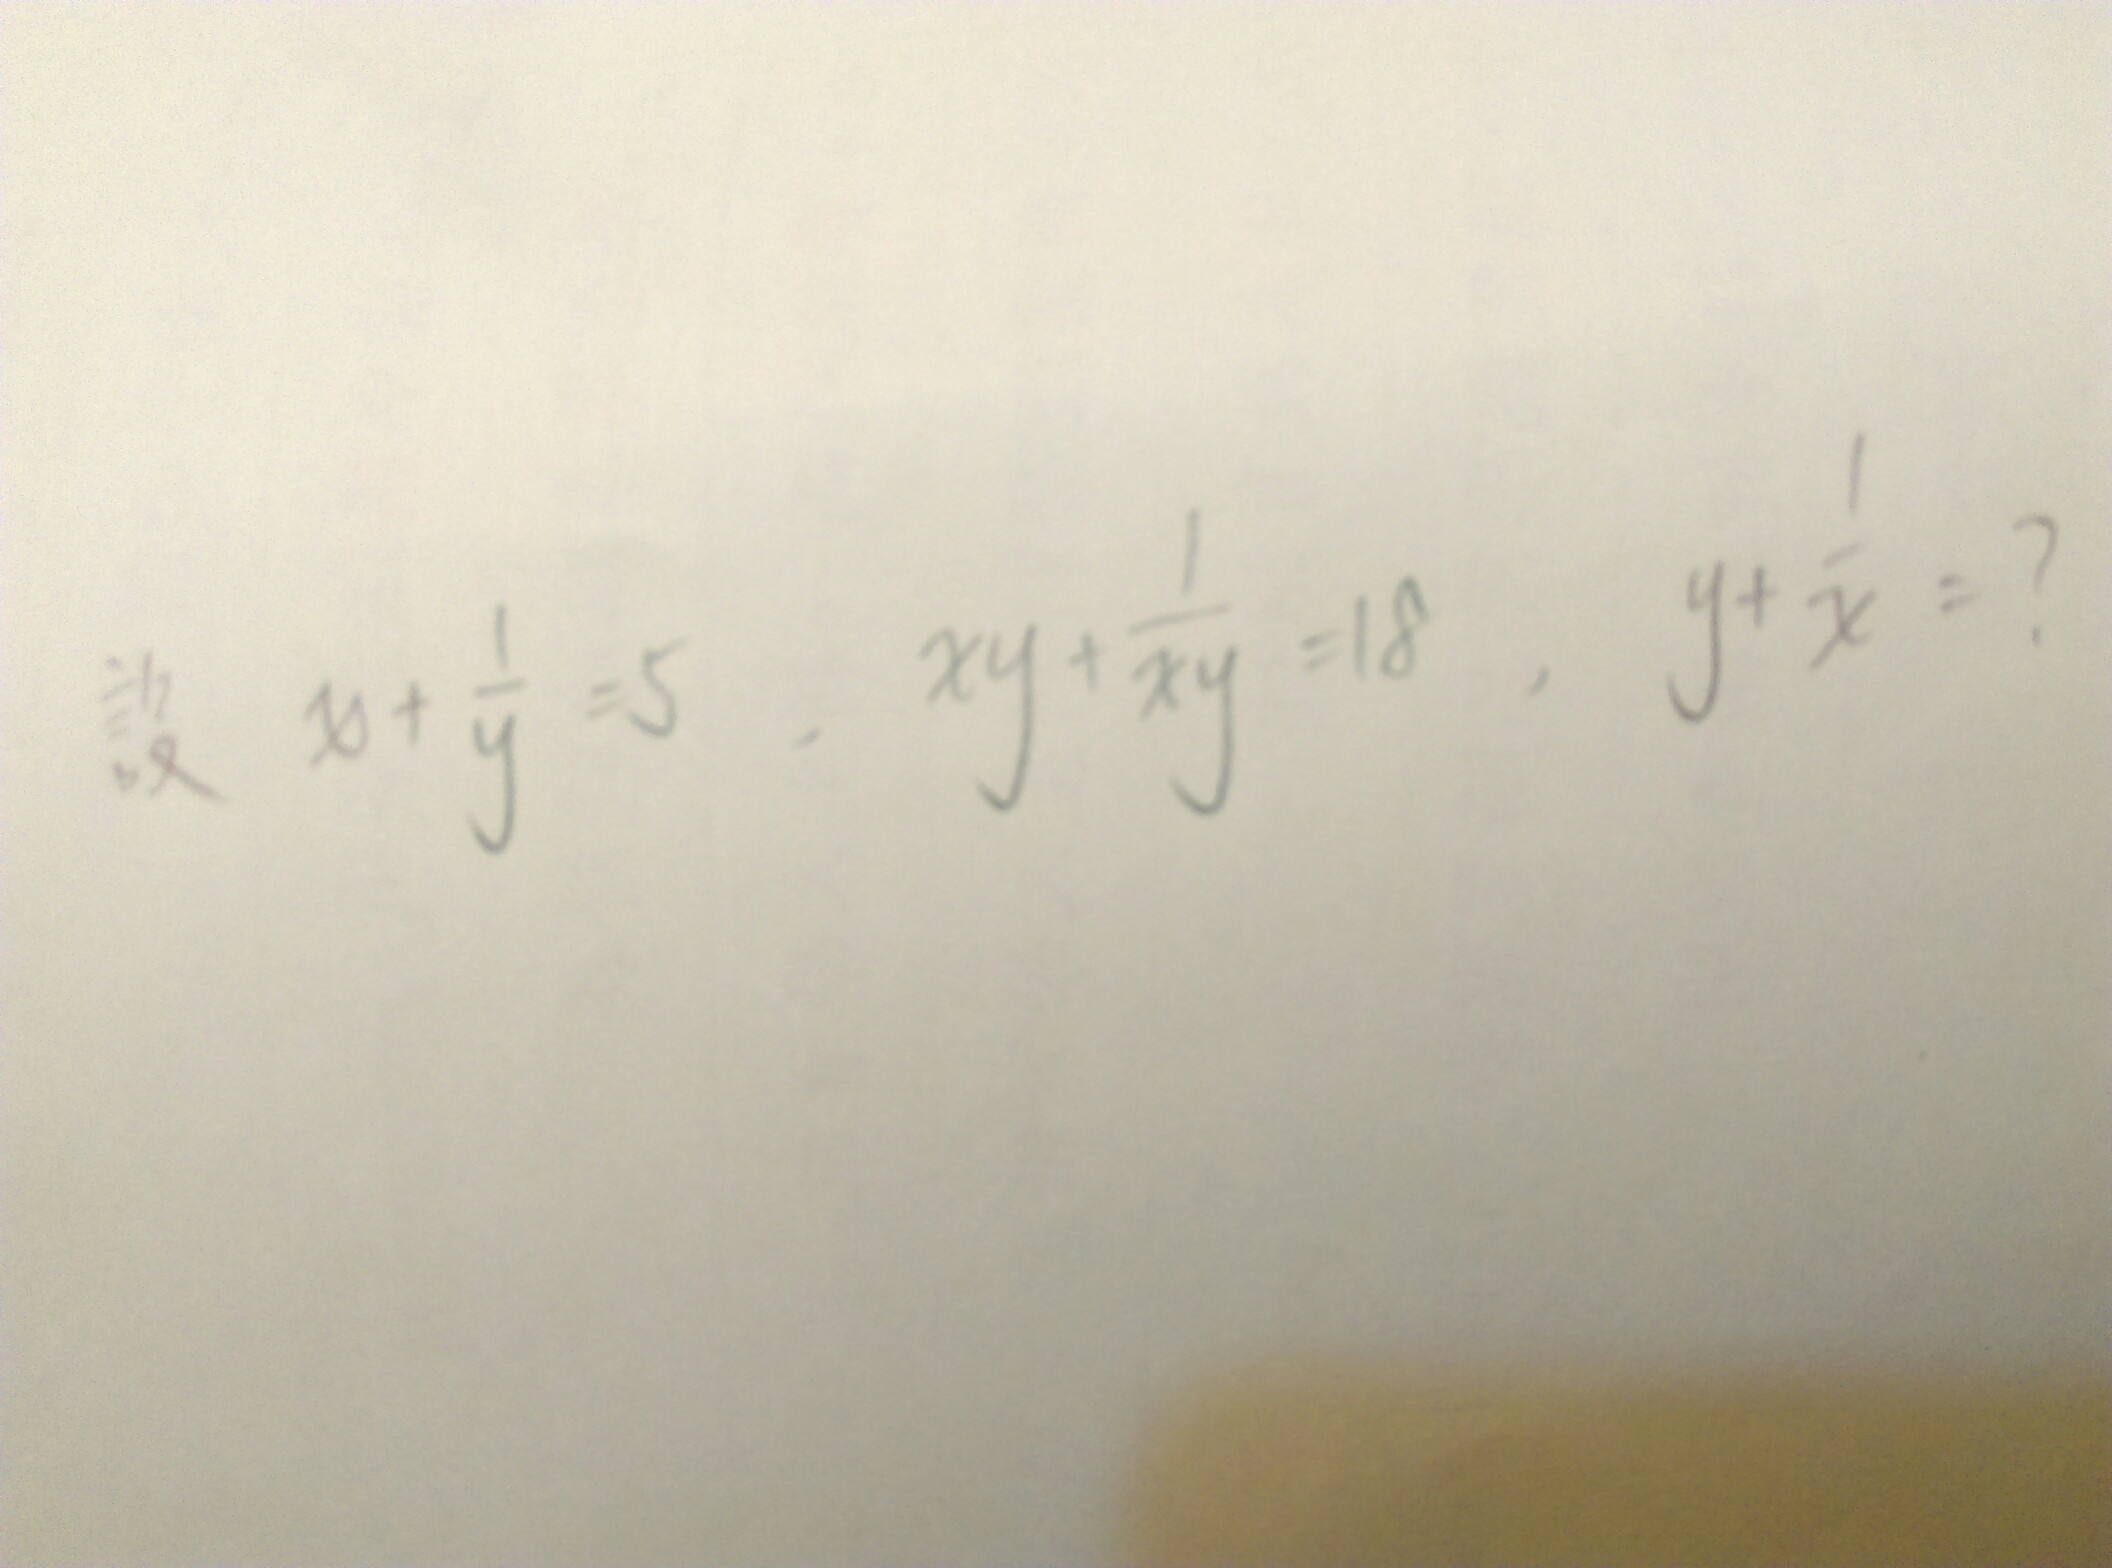 設 x + 1/y = 5 , xy + 1/xy = 18 , y + 1/x = ?